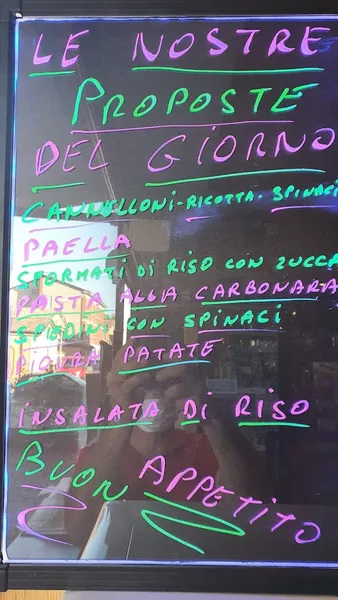 LE NOSTRE
PROPOSTE
DEL GIORNO
CANNELLONI-RICOTTA-SPINACI
PAELLA
SFORMATI DI RISO CON ZUCCA
PASTA ALLA CARBONARA
SPIEDINI CON SPINACI
PATATE
INSALATA DI RISO
BUON APPETITO